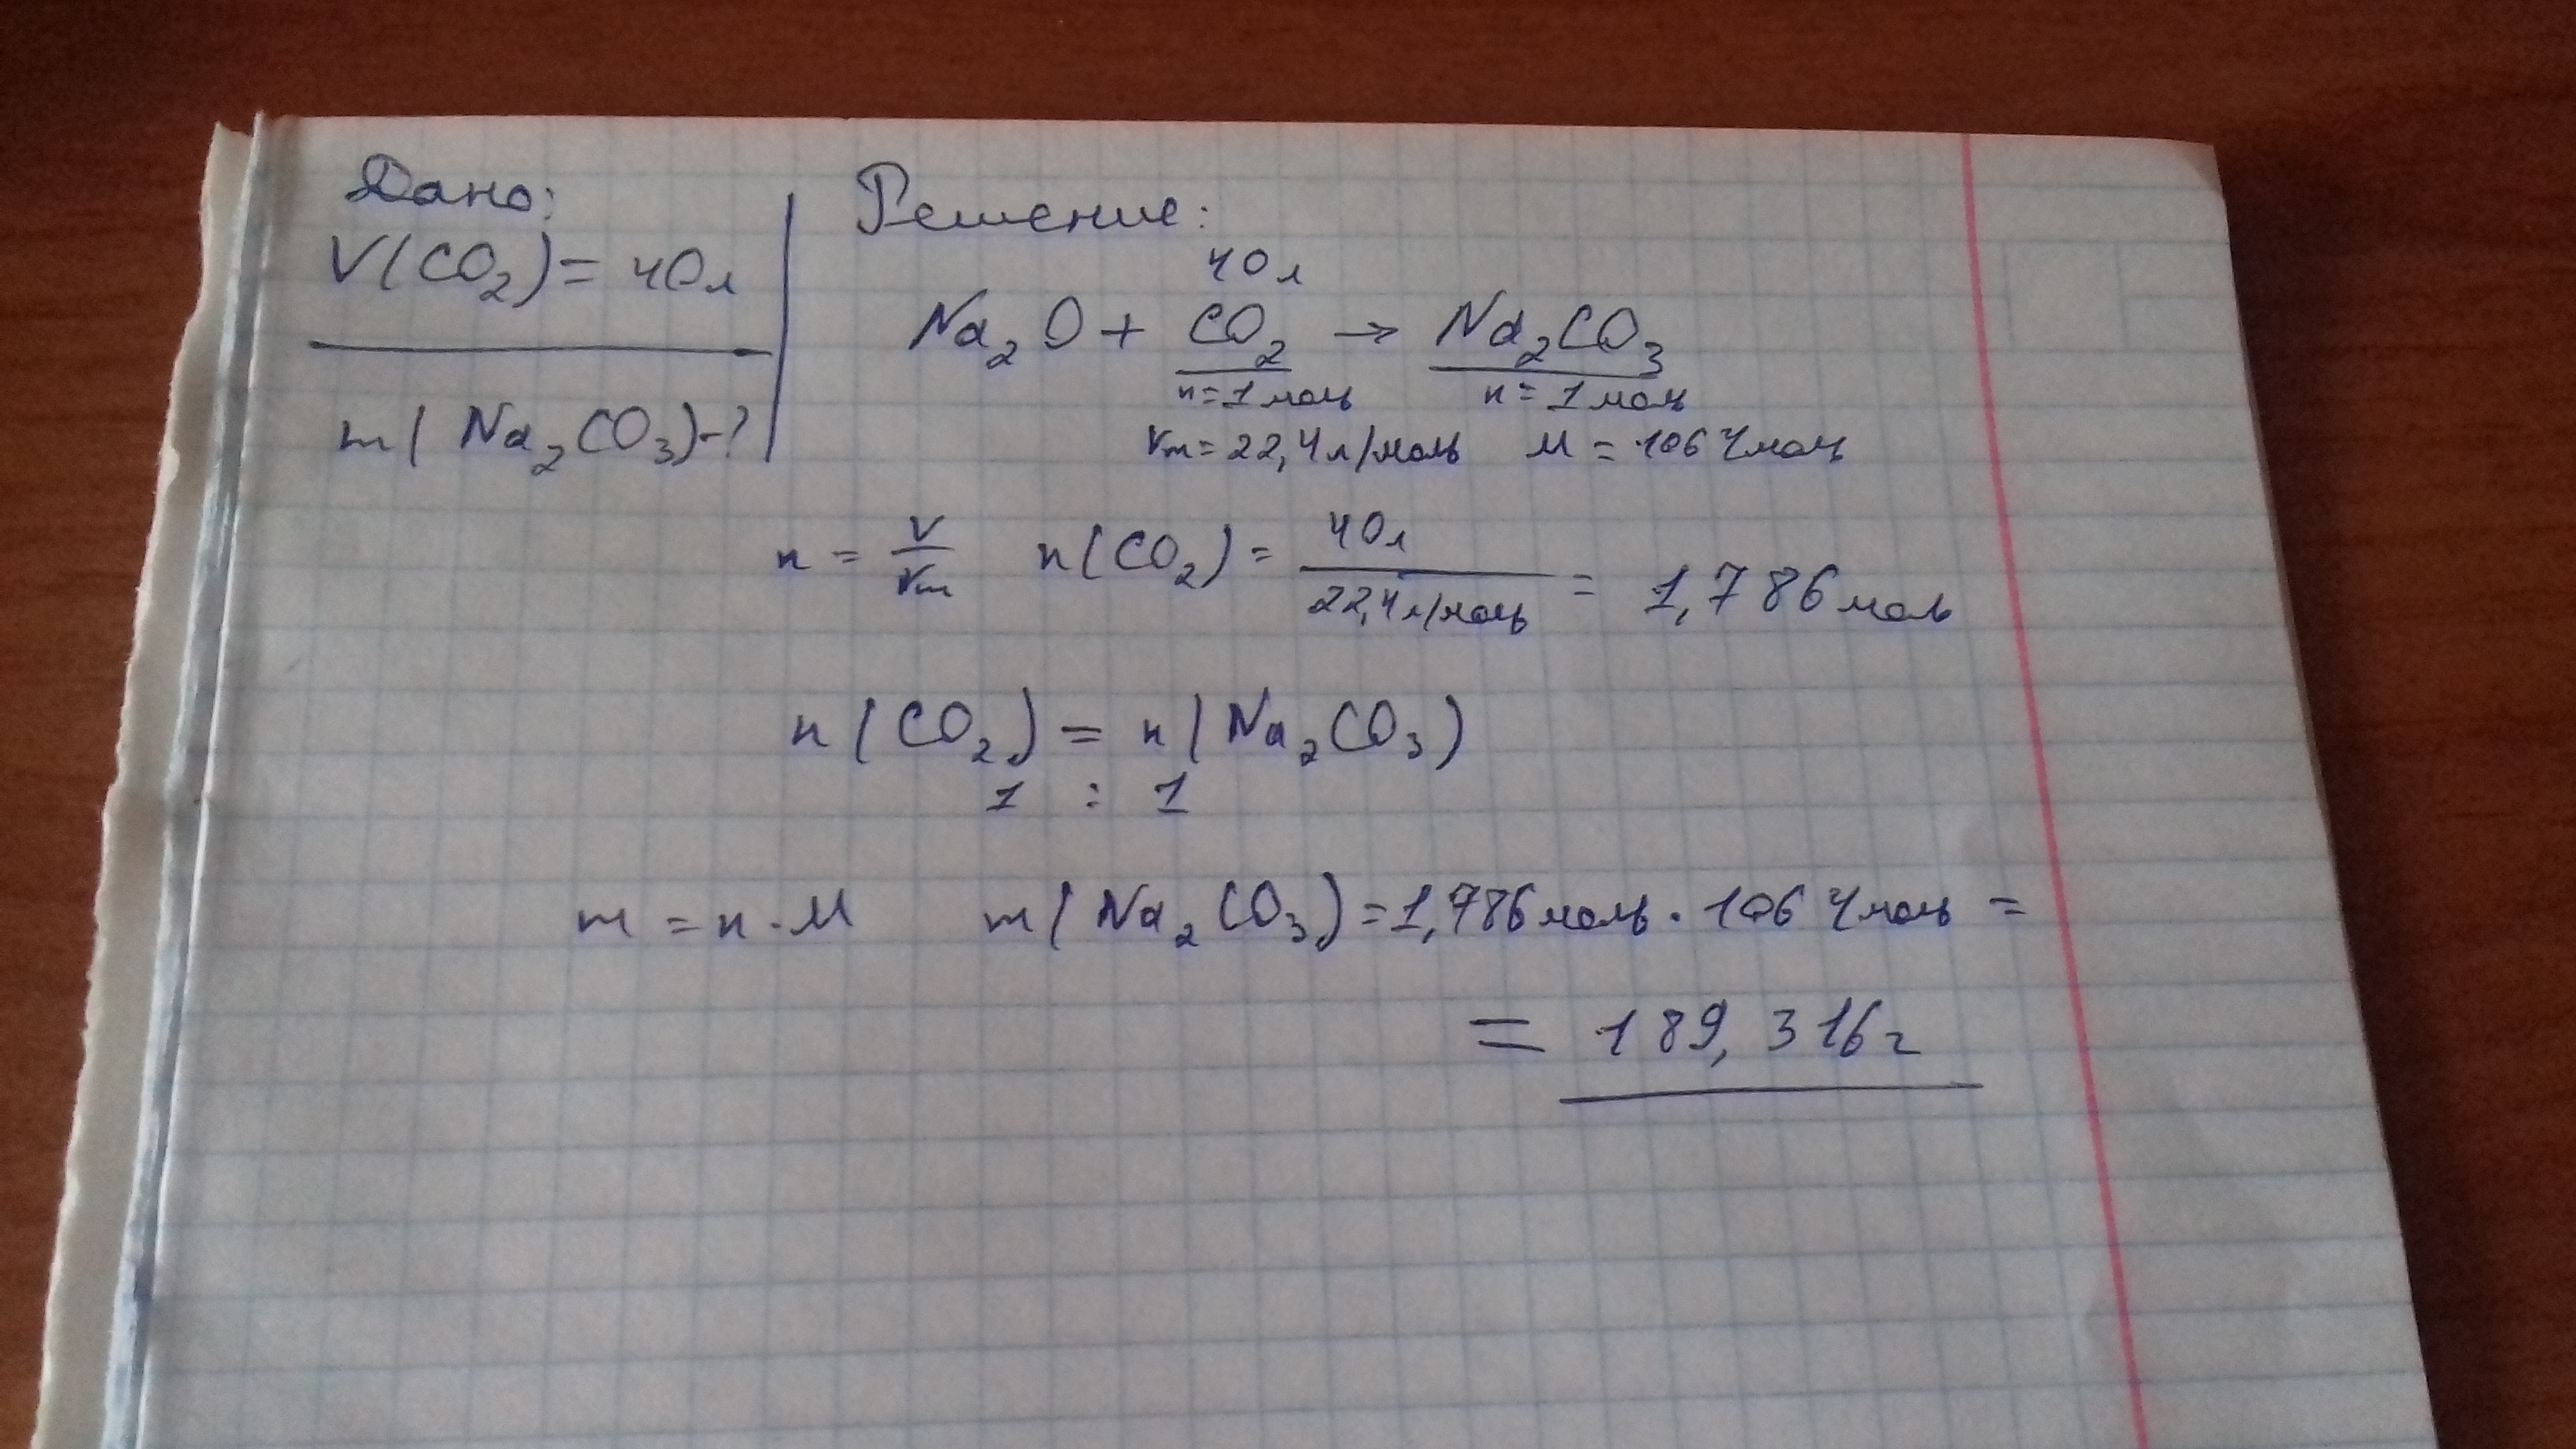 Дано:
V(CO₂) = 40л
m(Na₂CO₃)-?
Решение:
40л
Na₂O + CO₂ → Na₂CO₃
n=1моль n=1моль
Vm=22,4л/моль M=106г/моль
n = V/Vm n(CO₂) = 40л/22,4л/моль = 1,786моль
n(CO₂) = n(Na₂CO₃)
1 : 1
m = n·M m(Na₂CO₃)=1,786моль·106г/моль =
= 189,316г